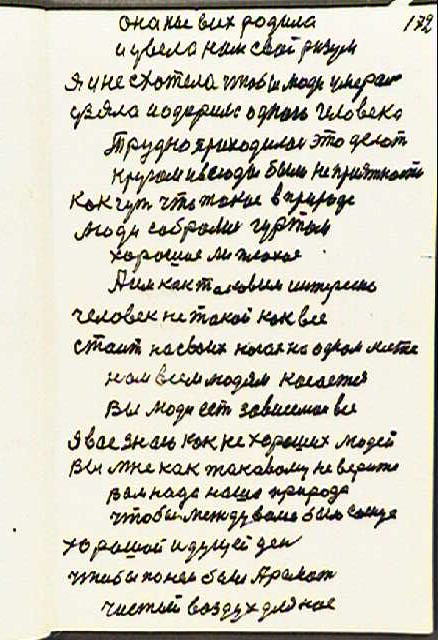 172
она нас всих родила
и увела нам свой разум
Я и не схотела чтобы люди умерали
взяла и одарила одного человека
Трудно приходилось это делат
кругом и всюду были неприятности
как чут что такое в природе
люди собрались гуртом
хорошие ли плохие
А им как таковым интересно
человек не такой как все
стоит на своих ногах на одном месте
нам всем людям касается
Вы люди ест зависемые все
Я вас знаю как не хороших людей
Вы мне как таковому не верите
вам надо наша природа
чтобы между вами было солнце
хороший идущей ден
чтобы по нем был Аромат
чистый воздух для нас